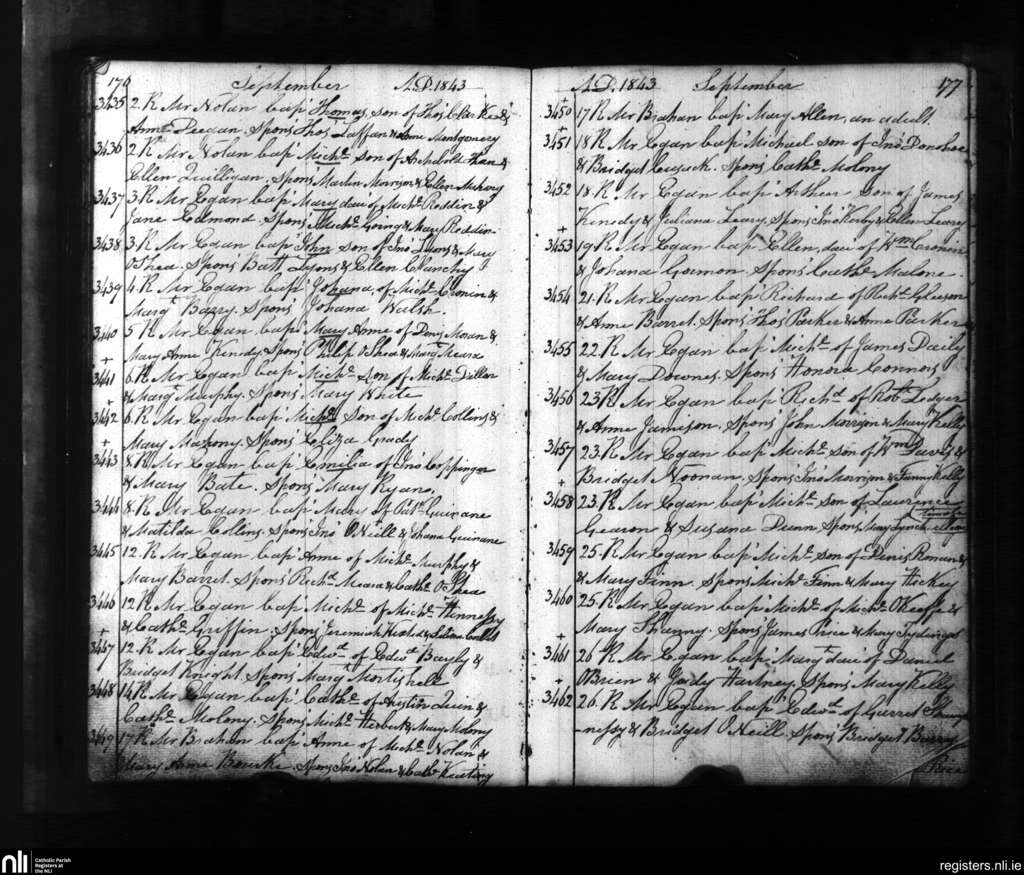 176 September A.D. 1843
3435 2. R. Mr Nolan bap.d Thomas, son of Thos
Anne Deegan. Spons Thos Laffan & Anne Montgomery
3436 2 R. Mr Nolan bap.d Mich.l son of Archebold &
Ellen Quilligan. Spons Martin Morrison & Ellen
3437 3 R. Mr Egan bap.d Mary dau.r of Mich.l Reddin &
Jane Edmond. Spons Mich.l Going & Mary Reddin
3438 3 R. Mr Egan bap.d John son of Jno Lyons & Mary
O'Shea. Spons Batt Lyons & Ellen Clanchy
3439 4 R. Mr Egan bap.d Johana of Mich.l Cronin &
Marg.t Barry. Spons Johana Walsh.
3440 5 R. Mr Egan bap.d Mary Anne of Deny Moran &
Mary Anne Kenedy. Spons Philip O'Shea & Marg.t Meara
3441 6. R. Mr Egan bap.d Mich.l son of Mich.l Dillon
& Marg.t Murphy. Spons Mary White
3442 6 R. Mr Egan bap.d Mich.l son of Mich.l Collins &
Mary Mahony. Spons Eliza Grady
3443 8 R. Mr Egan bap.d Emilia of Jno Coppinger
& Mary Bate. Spons Mary Ryan.
3444 8. R. Mr Egan bap.d Mary of Pat.k Guinane
& Matilda Collins. Spons Jno O'Neill & Johana Guinane
3445 12. R. Mr Egan bap.d Anne of Mich.l Murphy &
Mary Barret. Spons Rich.d Meara & Cath.e O'Shea
3446 12 R. Mr Egan bap.d Mich.l of Mich.l Hennessy
& Cath.e Griffin. Spons Jeremiah
3447 12. R. Mr Egan bap.d Edw.d of Edw.d Bayly &
Bridget Knight. Spons Marg.t Mortishell
3448 14 R. Mr Egan bap.d Cath.e of Austin Quin &
Cath.e Molony. Spons Mich.l Herbert & Mary Molony
3449 17 R. Mr Brahan bap.d Anne of Mich.l Nolan &
Mary Anne Bourke. Spons Jno Nolan & Cath.e Keating
A.D. 1843 September 177
3450 17 R. Mr Brahan bap.d Mary Allen, an adult.
3451 18 R. Mr Egan bap.d Michael son of Jno Donohoe
& Bridget Cusack. Spons Cath.e Molony
3452 18. R. Mr Egan bap.d Arthur son of James
Kenedy & Juliana Leary. Spons Jno Kerby & Ellen Leary
3453 19 R. Mr Egan bap.d Ellen, dau.r of Wm Cronin
& Johana Gorman. Spons Cath.e Malone.
3454 21. R. Mr Egan bap.d Richard of Rich.d Gleeson
& Anne Barret. Spons Thos Parker & Anne Parker
3455 22. R. Mr Egan bap.d Mich.l of James Daily
& Mary Downes. Spons Honora Connors
3456 23 R. Mr Egan bap.d Rich.d of Rob.t Ledger
& Anne Jamison. Spons John Morrison & Mary Kelly
3457 23. R. Mr Egan bap.d Mich.l son of Wm Davis &
Bridget Noonan. Spons Jno Morrison & Fanny Kelly
3458 23. R. Mr Egan bap.d Mich.l son of Laurence
Gearon & Susana Dunn. Spons Mary Lynch
3459 25. R. Mr Egan bap.d Mich.l son of Denis Ronan &
& Mary Finn. Spons Mich.l Finn & Mary Hickey
3460 25. R. Mr Egan bap.d Mich.l of Mich.l O'Keeffe &
Mary Shanny. Spons James Price & Mary
3461 26 R. Mr Egan bap.d Marg.t dau.r of Daniel
O'Brien & Judy Hartney. Spons Mary Kelly
3462 26. R. Mr Egan bap.d Edw.d of Garret Shaug
-nessy & Bridget O'Neill. Spons Bridget Barry
Price
nli Catholic Parish
Registers at
the NLI
registers.nli.ie